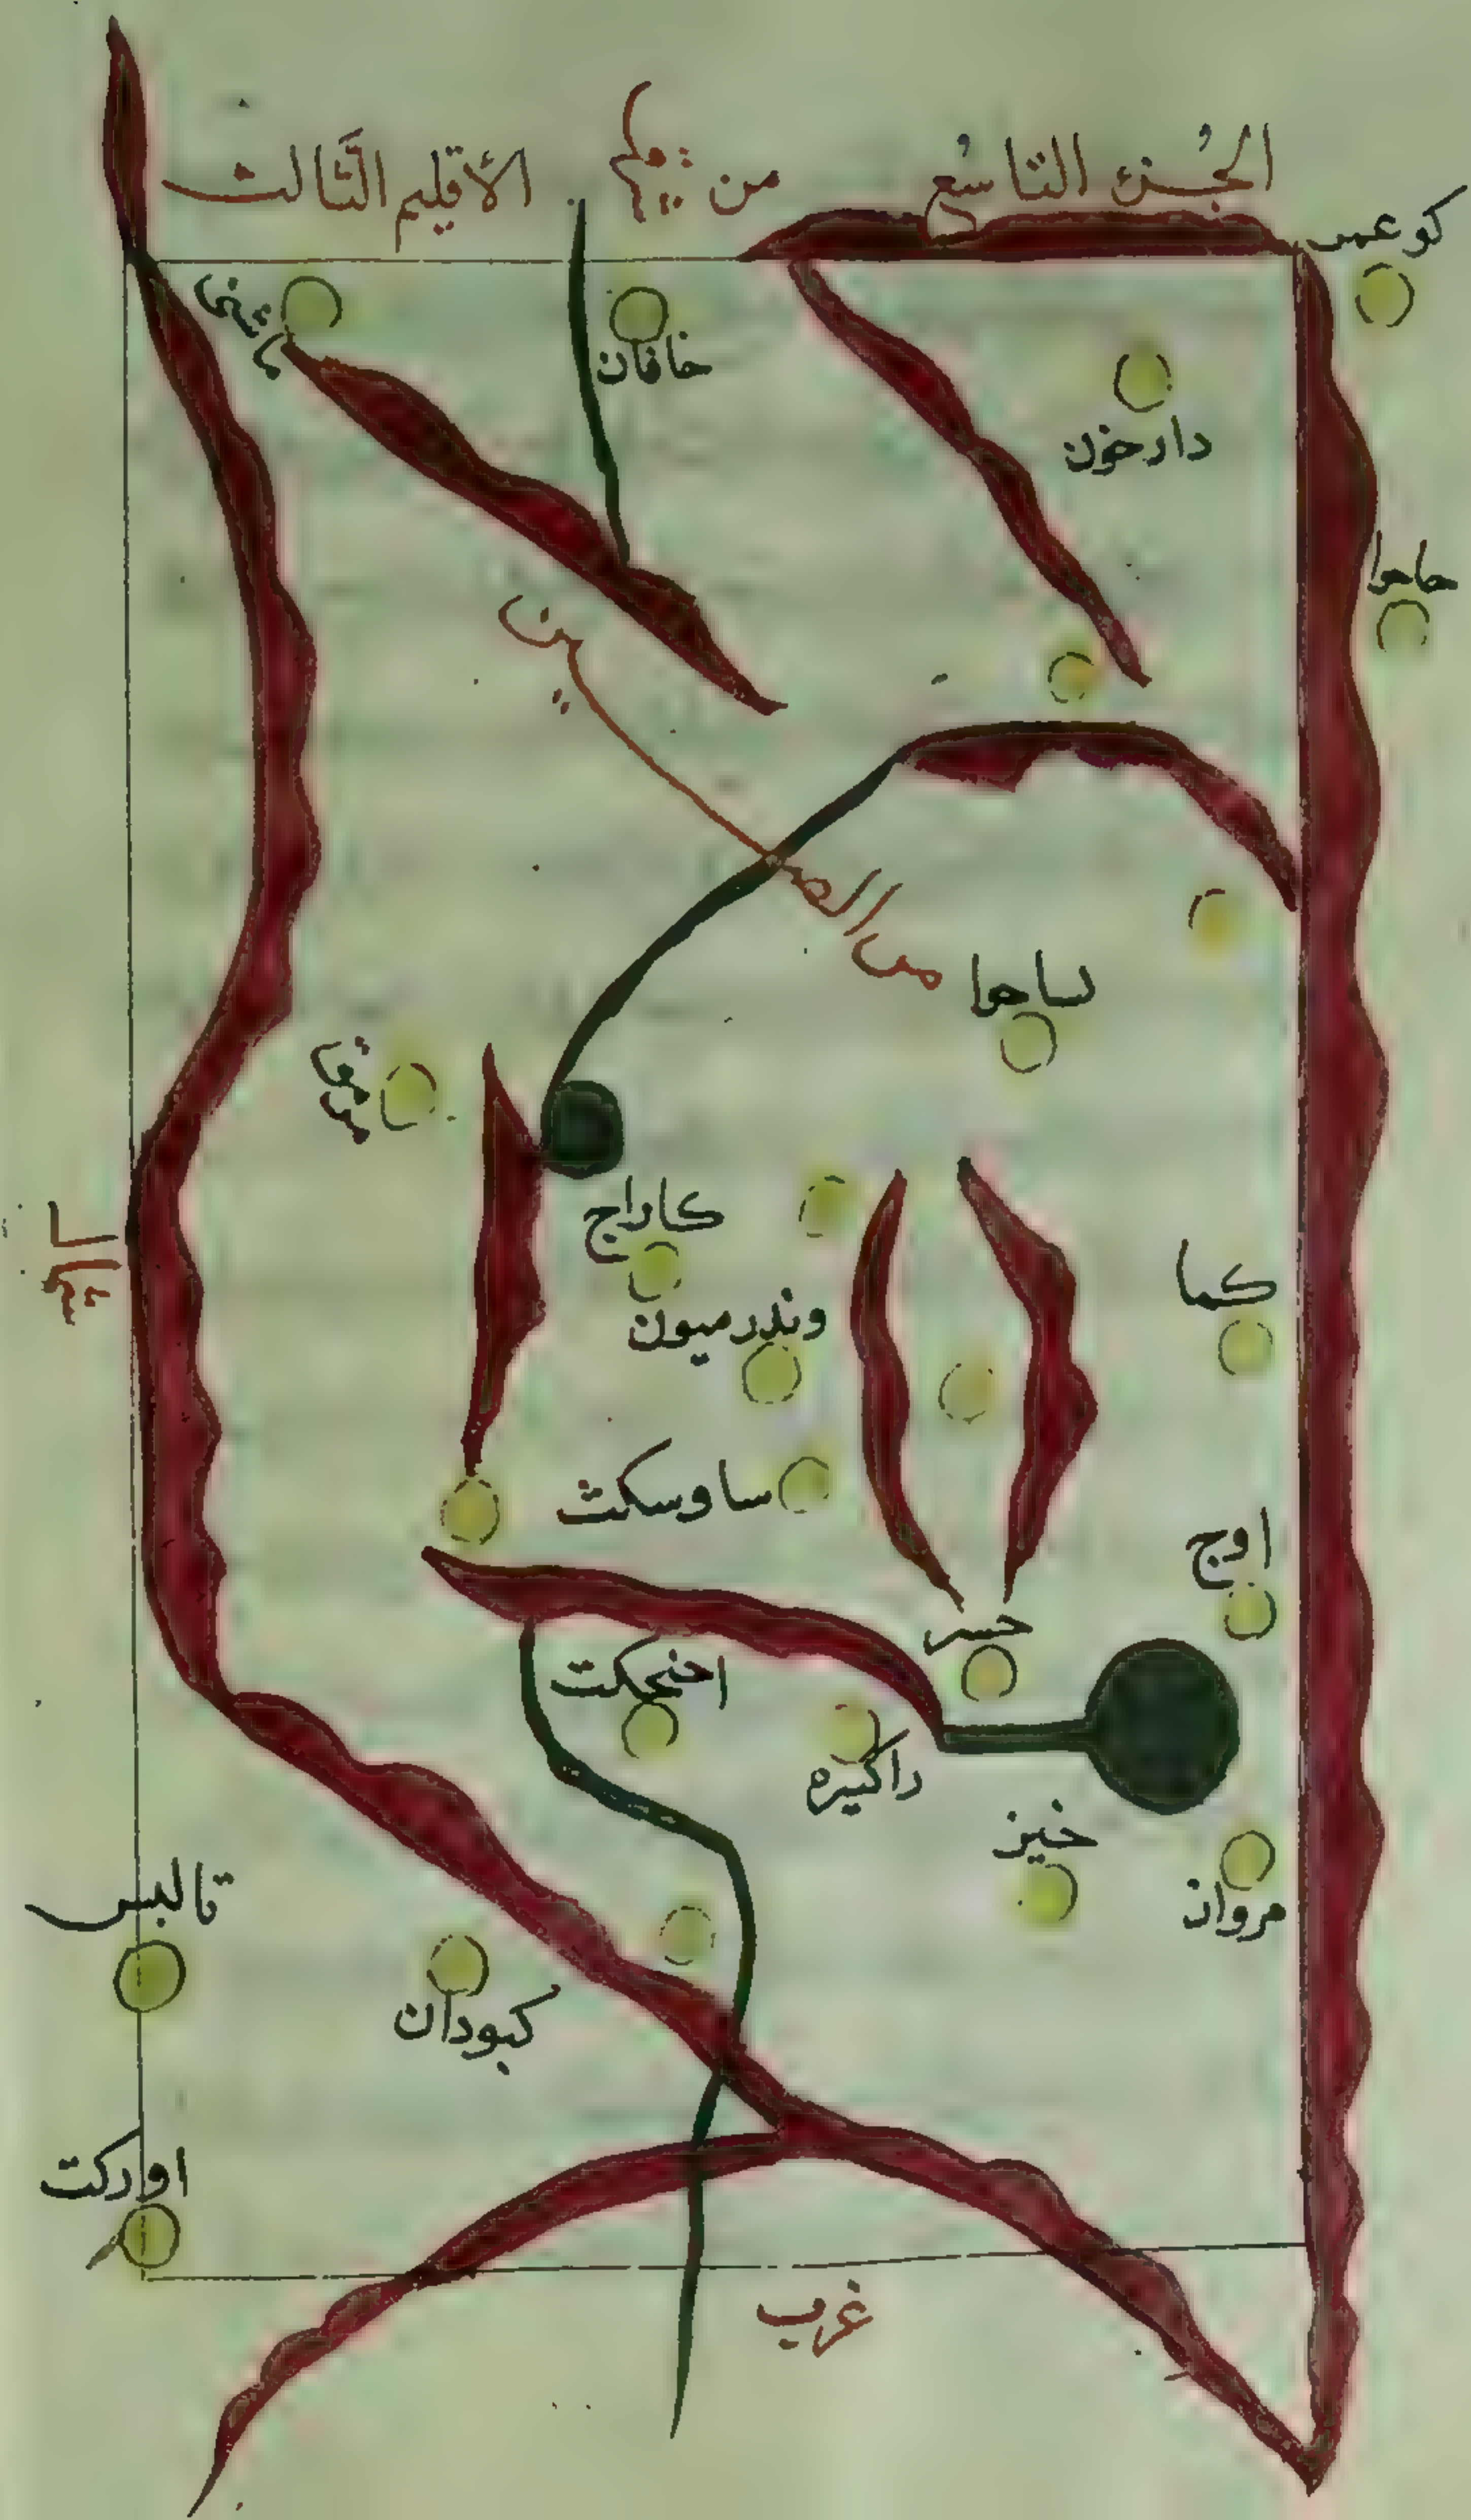 الجُزء التاسُع من الأقليم الثَّالث
كوعمر
خاقان
دارخون
حاحوا
من الصين
لساحوا
كاراج
كما
وندرميون
ساوسكث
اوج
حسر
اخنجكت
داكيره
خيز
مروان
قالبس
كبودان
اوركت
غرب
شمال